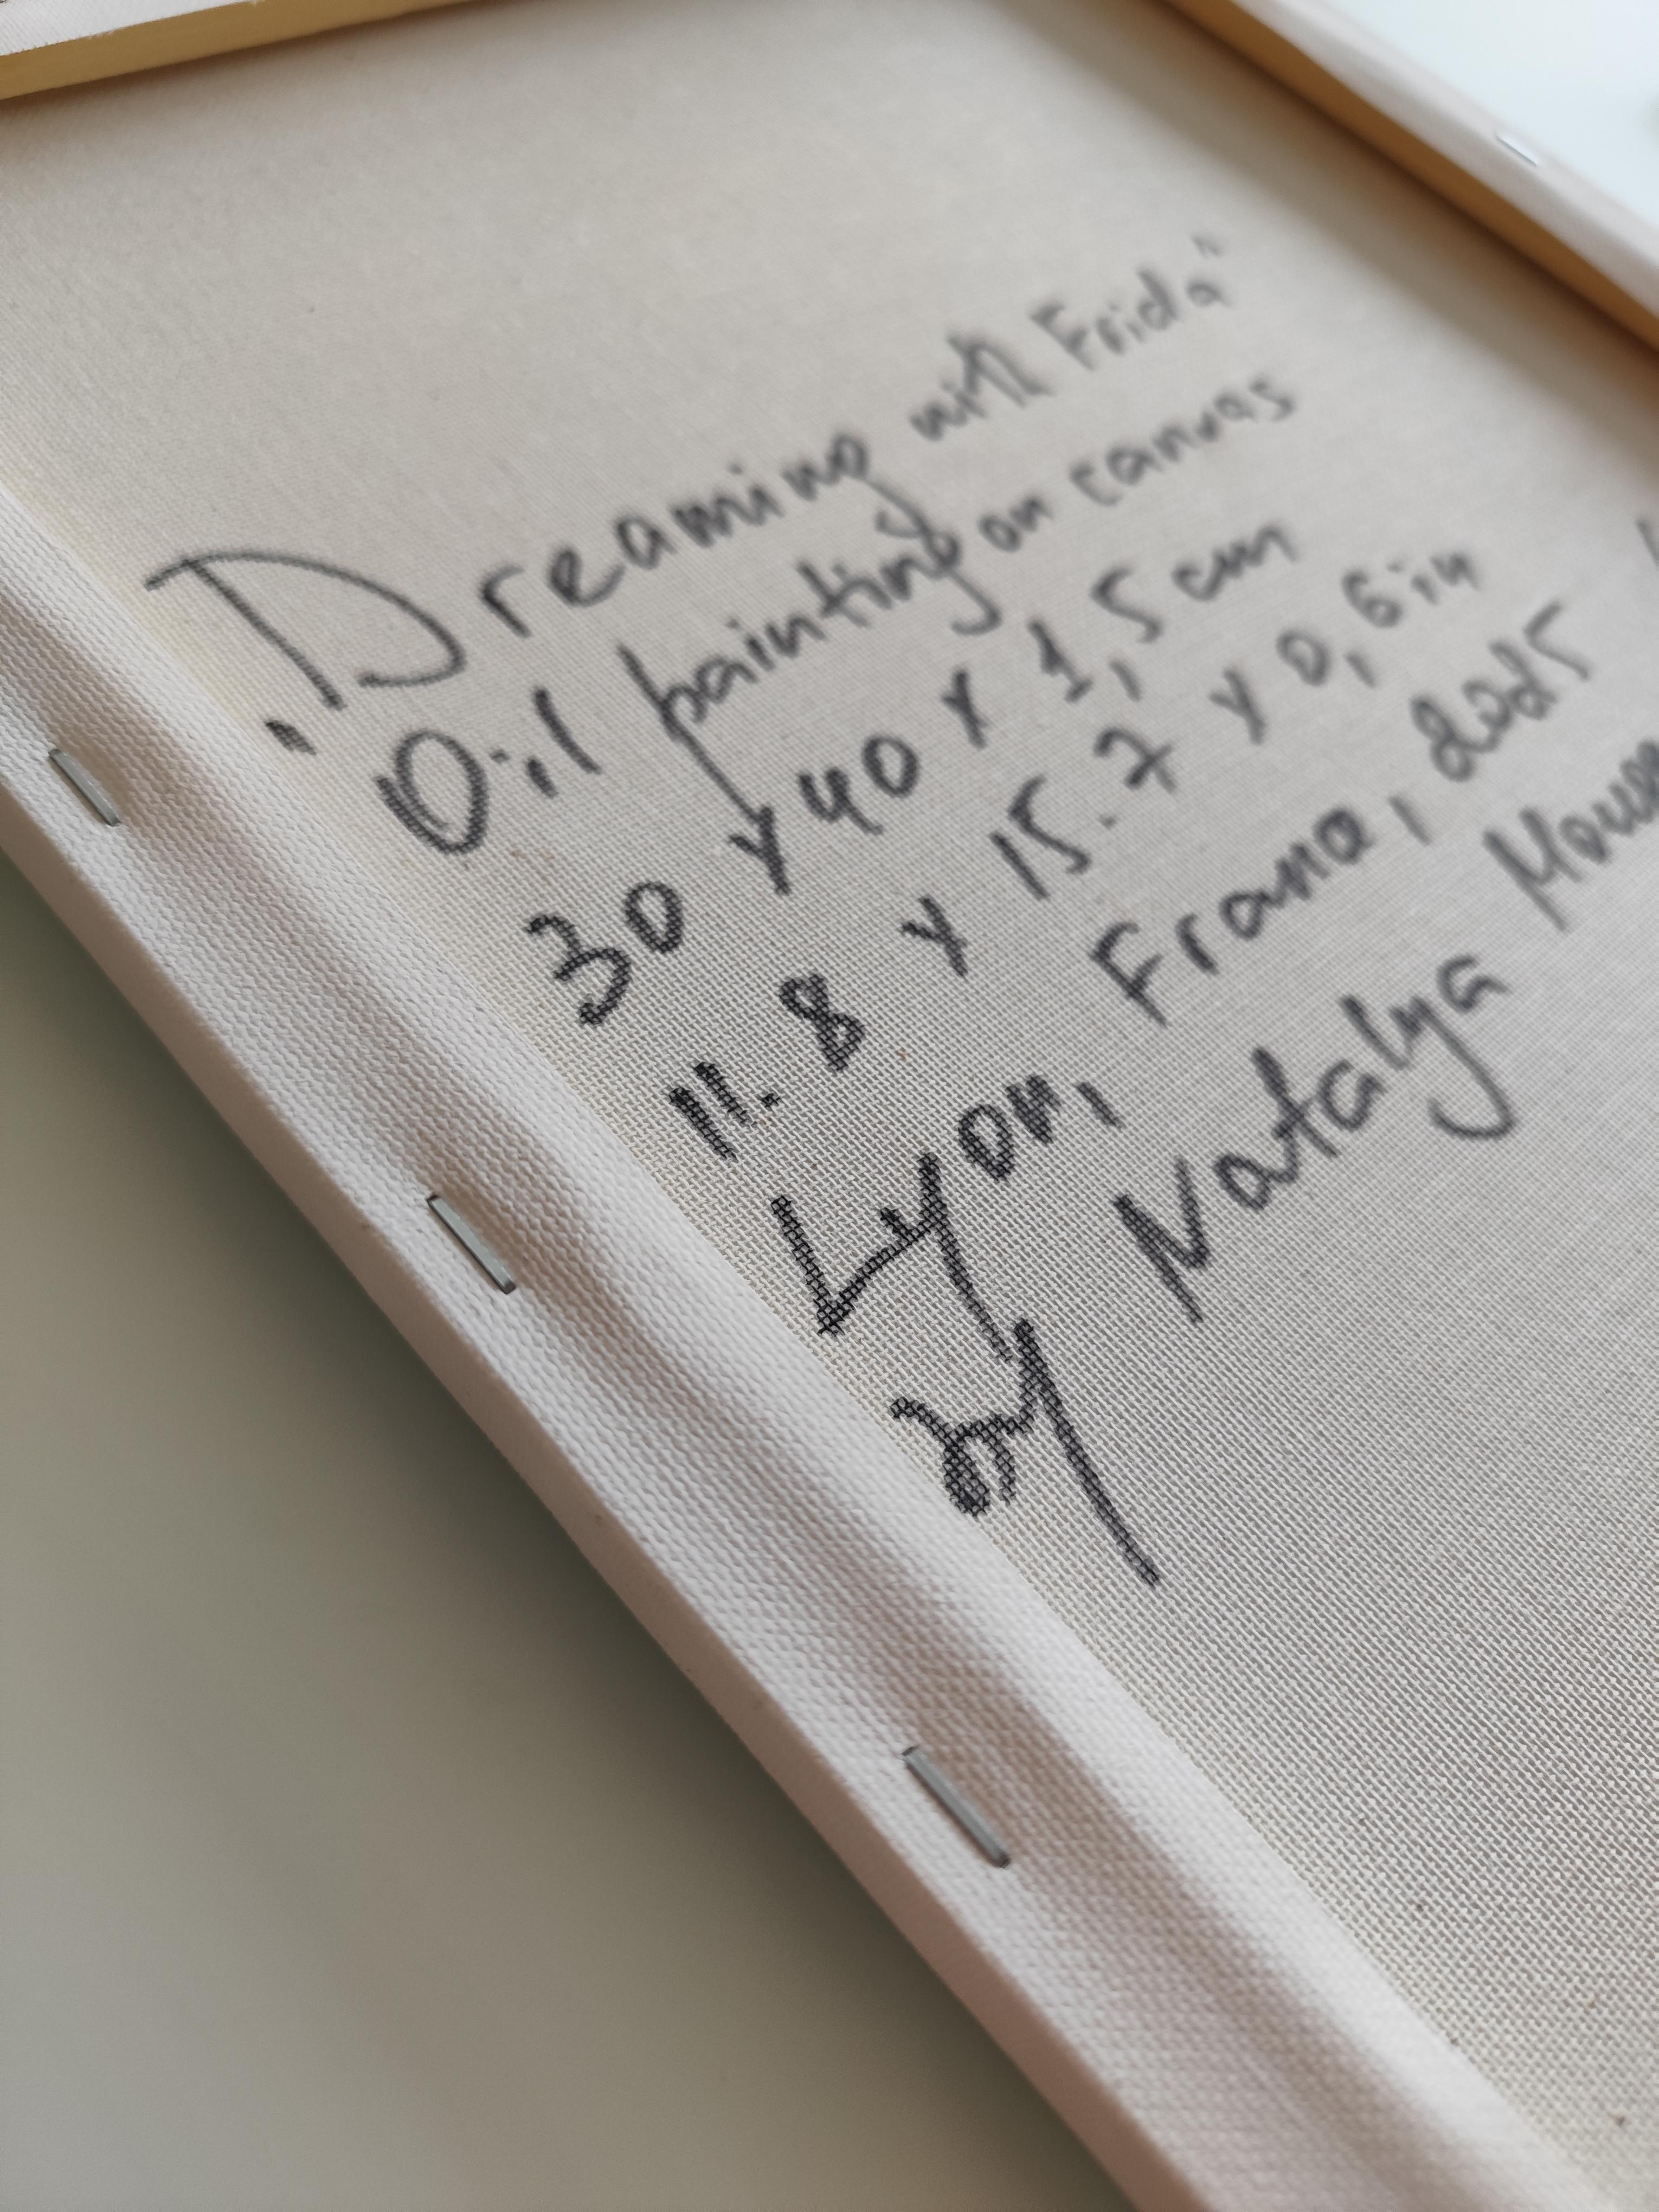 "Dreaming with Frida"
Oil painting on canvas
30 x 40 x 1,5 cm
11.8 x 15.7 x 0,6 in
Lyon, France, 2025
by Natalya